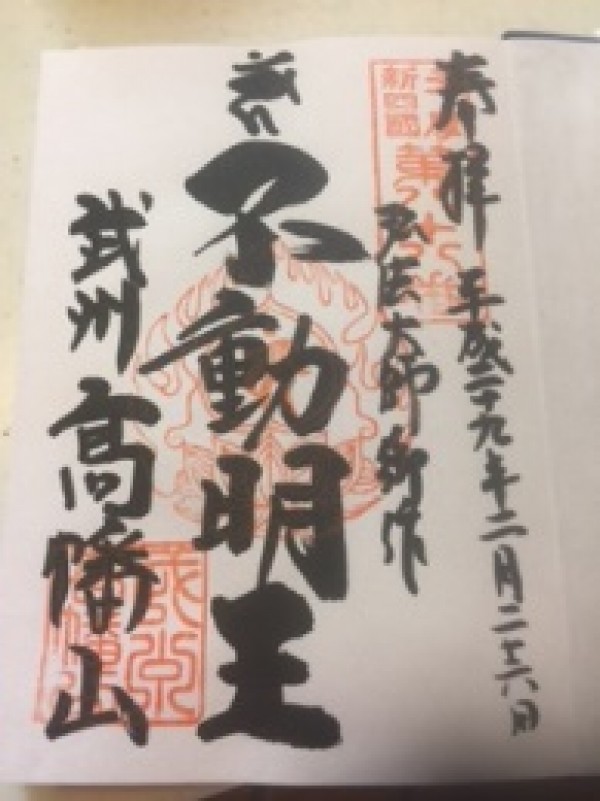 奉拝 平成二十九年二月二十六日
新四國
弘法大師御作
不動明王
武州 高幡山